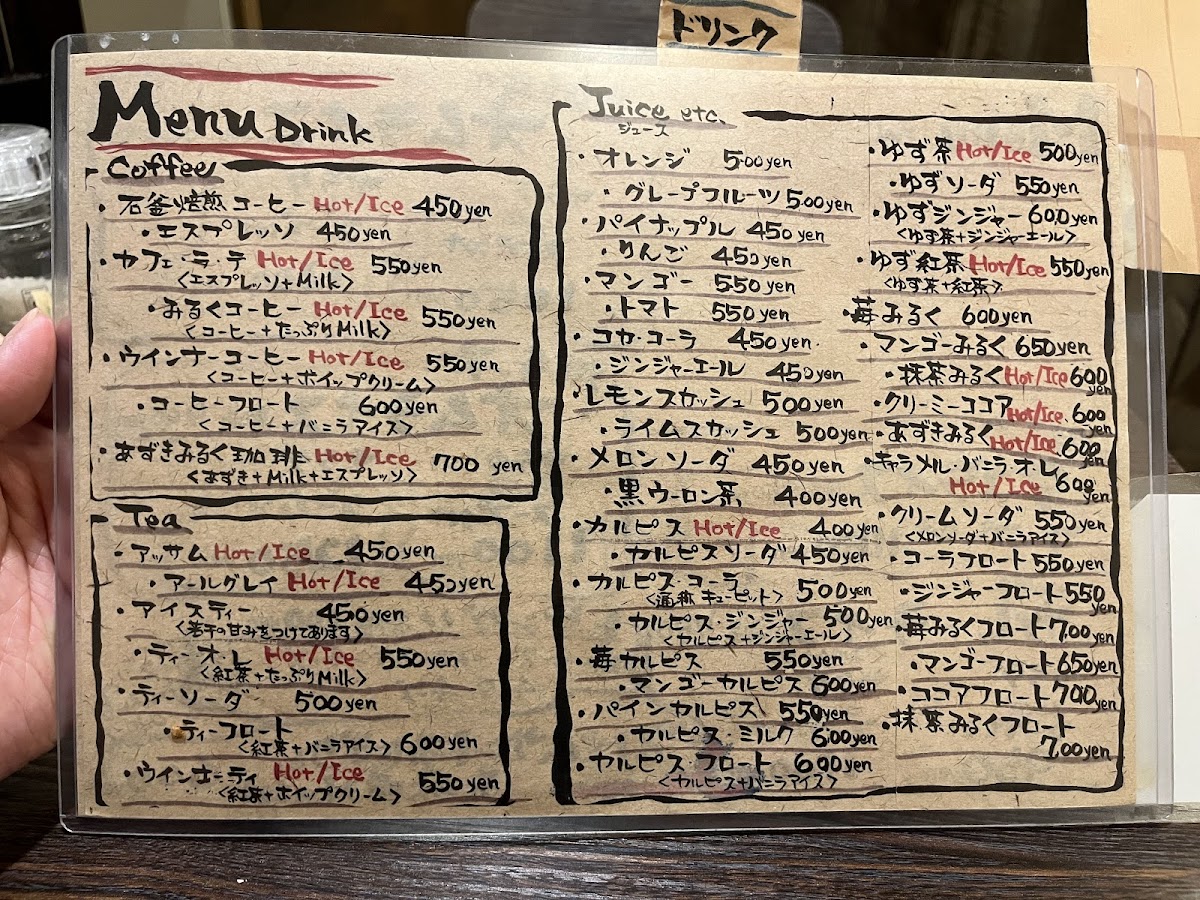 ドリンク
Menu Drink
Coffee
・石釜焙煎コーヒー Hot/Ice 450yen
・エスプレッソ 450yen
・カフェ・ラ・テ Hot/Ice 550yen
<エスプレッソ+Milk>
・みるくコーヒー Hot/Ice 550yen
<コーヒー+たっぷりMilk>
・ウインナーコーヒー Hot/Ice 550yen
<コーヒー+ホイップクリーム>
・コーヒーフロート 600yen
<コーヒー+バニラアイス>
・あずきみるく珈琲 Hot/Ice 700 yen
<あずき+Milk+エスプレッソ>
Tea
・アッサム Hot/Ice 450yen
・アールグレイ Hot/Ice 450yen
・アイスティー 450yen
<若干の甘みをつけてあります>
・ティーオ・レ Hot/Ice 550yen
<紅茶+たっぷりMilk>
・ティーソーダ 500yen
・ティーフロート
<紅茶+バニラアイス> 600yen
・ウインナーティ Hot/Ice 550yen
<紅茶+ホイップクリーム>
Juice etc.
ジュース
・オレンジ 500yen
・グレープフルーツ 500yen
・パイナップル 450yen
・りんご 450yen
・マンゴー 550yen
・トマト 550yen
・コカ・コーラ 450yen
・ジンジャーエール 450yen
・レモンスカッシュ 500yen
・ライムスカッシュ 500yen
・メロンソーダ 450yen
・黒ウーロン茶 400yen
・カルピス Hot/Ice 400yen
・カルピスソーダ 450yen
・カルピス・コーラ 500yen
<通称キューピット>
・カルピス・ジンジャー 500yen
<カルピス+ジンジャーエール>
・苺カルピス 550yen
・マンゴーカルピス 600yen
・パインカルピス 550yen
・カルピス・ミルク 600yen
・カルピス・フロート 600yen
<カルピス+バニラアイス>
・ゆず茶 Hot/Ice 500yen
・ゆずソーダ 550yen
・ゆずジンジャー 600yen
<ゆず茶+ジンジャーエール>
・ゆず紅茶 Hot/Ice 550yen
<ゆず茶+紅茶>
・苺みるく 600yen
・マンゴーみるく 650yen
・抹茶みるく Hot/Ice 600yen
・クリーミーココア Hot/Ice 600yen
・あずきみるく Hot/Ice 600yen
・キャラメル・バニラ・オレ 600yen
Hot/Ice
・クリームソーダ 550yen
<メロンソーダ+バニラアイス>
・コーラフロート 550yen
・ジンジャーフロート 550yen
・苺みるくフロート 700yen
・マンゴーフロート 650yen
・ココアフロート 700yen
・抹茶みるくフロート
700yen